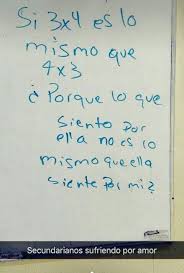 Si 3x4 es lo
mismo que
4x3
¿Porque lo que
siento por
ella no es lo
mismo que ella
siente por mi?
Secundarianos sufriendo por amor